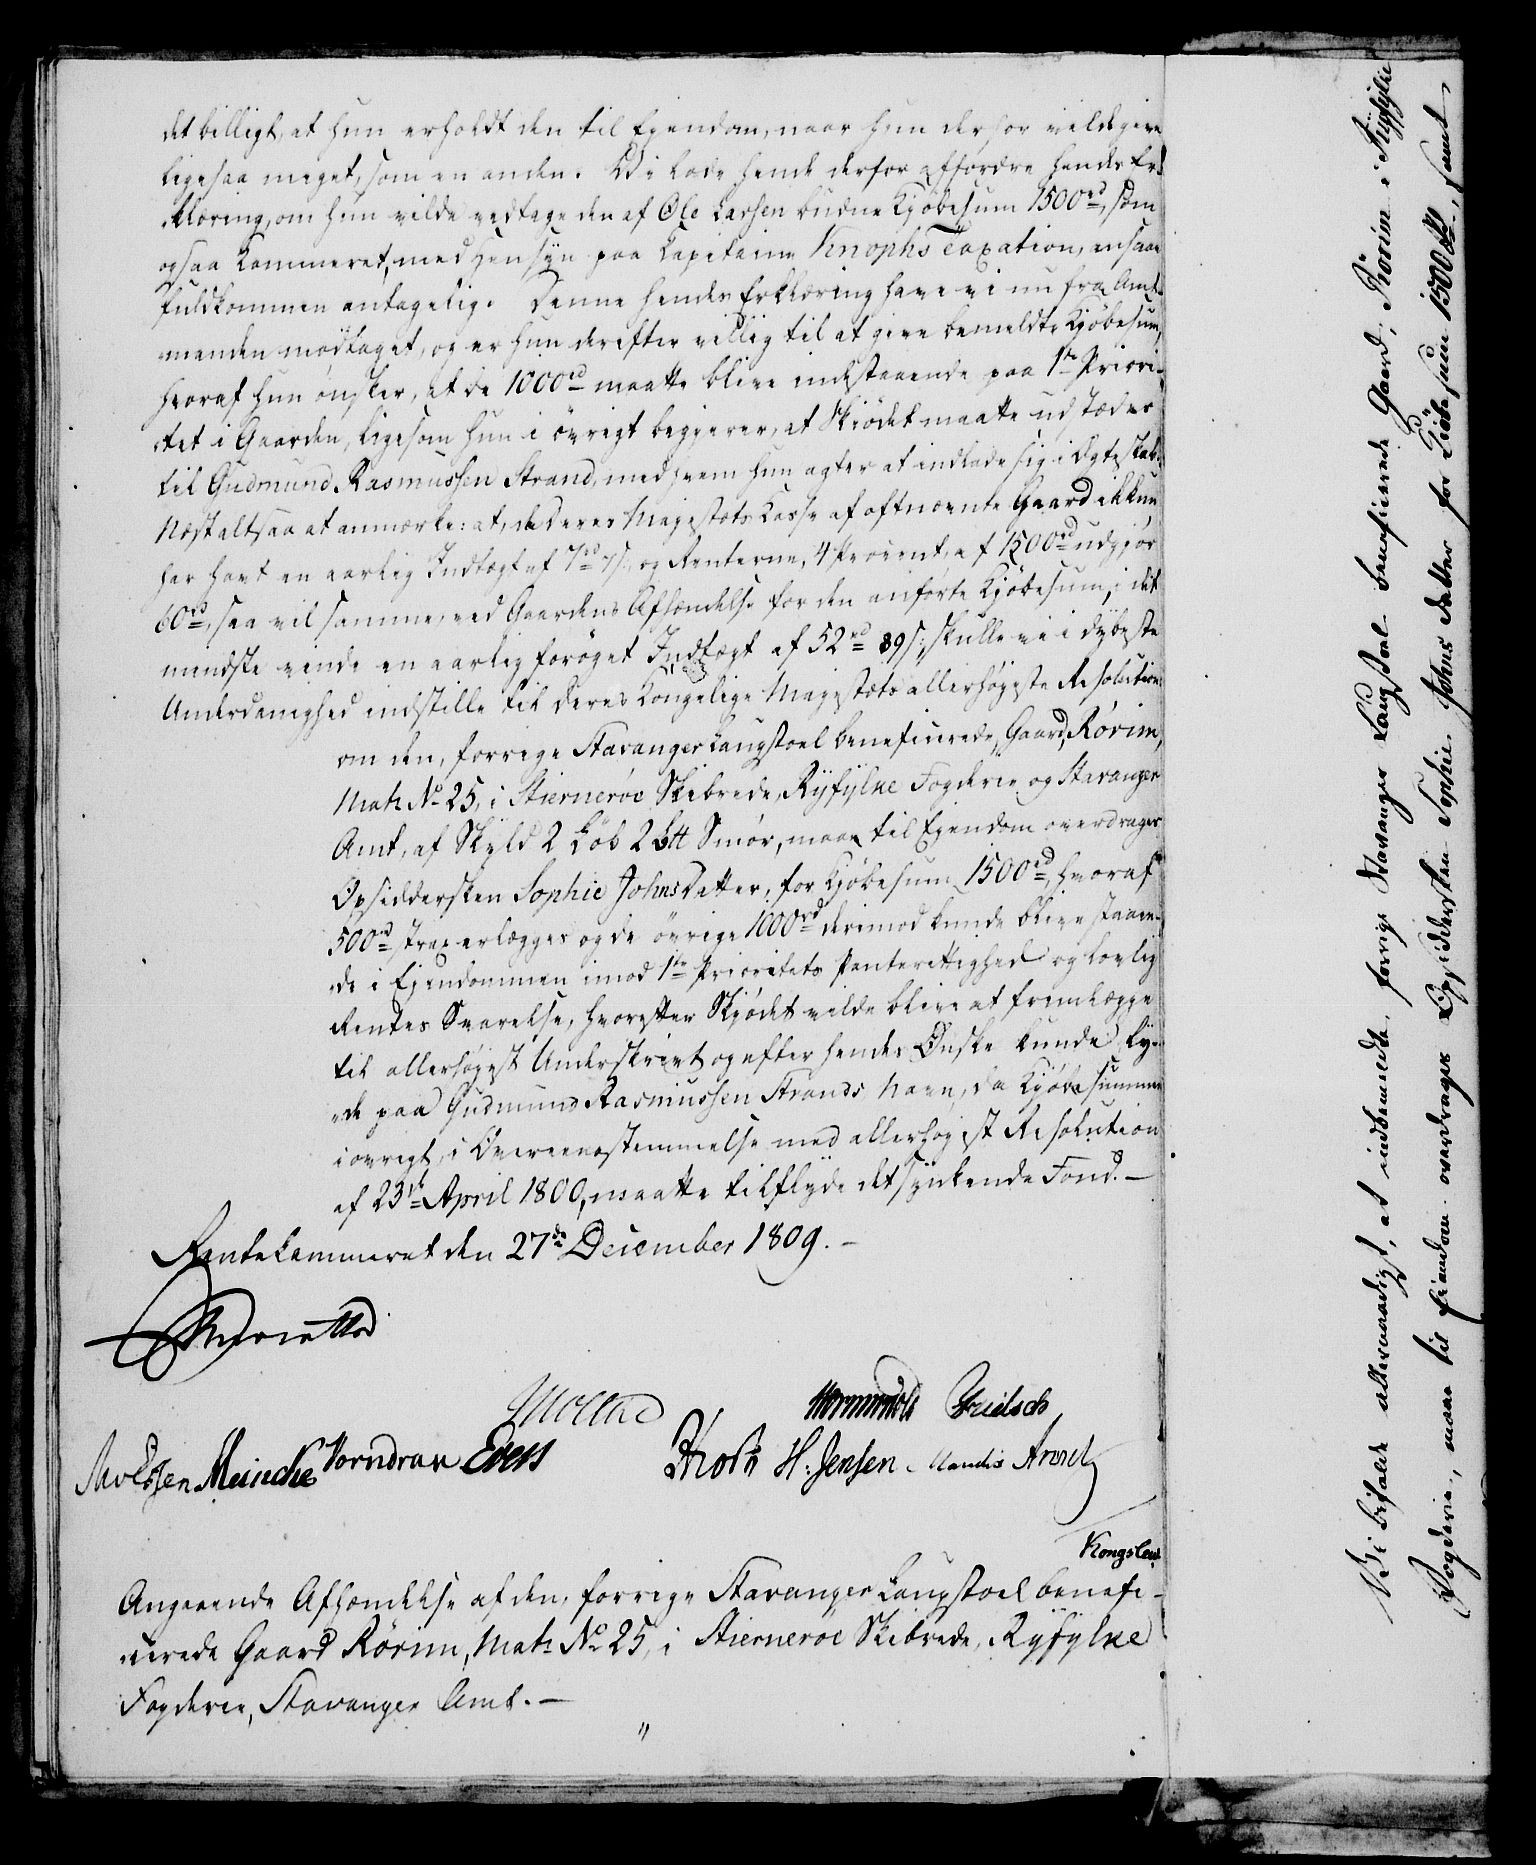 det billigt, at hun erholdt den til Ejendom, naar hun derfor vilde give
ligesaa meget, som en anden. Vi lode hende derfor affordre hendes Er¬
klæring, om hun vilde vedtage den af Ole Larsen budne Kjøbesum 1500rd, som
ogsaa Kammeret, med Hensyn paa Capitaine Knophs Taxation, ansaae
fuldkommen antagelig. Denne hendes Erklæring have vi nu fra Amt¬
manden modtaget, og er hun derefter villig til at give bemeldte Kjøbesum,
hvoraf hun ønsker, at de 1000rd maatte blive indestaaende paa 1te Priori¬
tet i Gaarden, ligesom hun i øvrigt begjerer, at Skiødet maatte udstædes
til Gudmund Rasmussen Strand, med hvem hun agter at indlade sig i Ægteskab.
Næst altsaa at anmærke: at, da Deres Majestæts Casse af oftnævnte Gaard ikkun
har havt en aarlig Indtægt af 7rd 7s, og Renterne, 4 Procent, af 1500rd udgjør
60rd, saa vil samme, ved Gaardens Afhændelse for den anførte Kjøbesum, i det
mindste vinde en aarlig forøget Indtægt af 52rd 89s; skulle vi i dybeste
Underdanighed indstille til Deres Kongelige Majestæts allerhøyeste Resolution:
om den, forrige Stavanger Laugstoel beneficerede, Gaard, Rörim,
Matr No 25, i Stiernerøe Skibrede, Ryfylke Fogderie og Stavanger
Amt, af Skyld 2 Løb 2 Bpd Smør, maae til Ejendom overdrages
Opsiddersken Sophie Johnsdatter, for Kjøbesum 1500rd, hvoraf
500rd strax erlægges og de øvrige 1000rd derimod kunde blive staaen¬
de i Ejendommen imod 1te Prioritets Panterettighed og lovlig
Rentes Svarelse, hvorefter Skjødet vilde blive at fremlægge
til allerhøyest Underskrivt og efter hendes Ønske kunde ly¬
de paa Gudmund Rasmussen Strands Navn, da Kjøbesummen
iøvrigt, i Overeensstemmelse med allerhøyest Resolution
af 23de April 1800, maatte tilflyde det synkende Fond. —
Rentekammeret den 27de December 1809. —
Reventlow
Moltke Wormskiold Fritsch
Mølsen Meincke Vorndran Evers Knoph H: Jensen. Arvid
Kongsleu
Angaaende Afhændelse af den, forrige Stavanger Laugstoel benefi¬
cerede Gaard Rörim, Matr No 25, i Stiernerøe Skibrede, Ryfylke
Fogderie, Stavanger Amt. —
"
Vi bifalde allernaadigst, at indbemeldte, forrige Stavanger Laugstoel beneficerede Gaard, Rörim i Ryfylke
Fogderie, maae til Eiendom overdrages Opsiddersken Sophie Johns Datter for Kiøbesum 1500 rd, samt